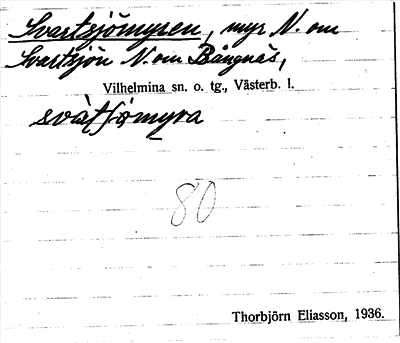 Svartsjömyren, myr N. om
Svartsjön N. om Bångnäs,
Vilhelmina sn. o. tg., Västerb. l.
svàtʃömyra
80
Thorbjörn Eliasson, 1936.